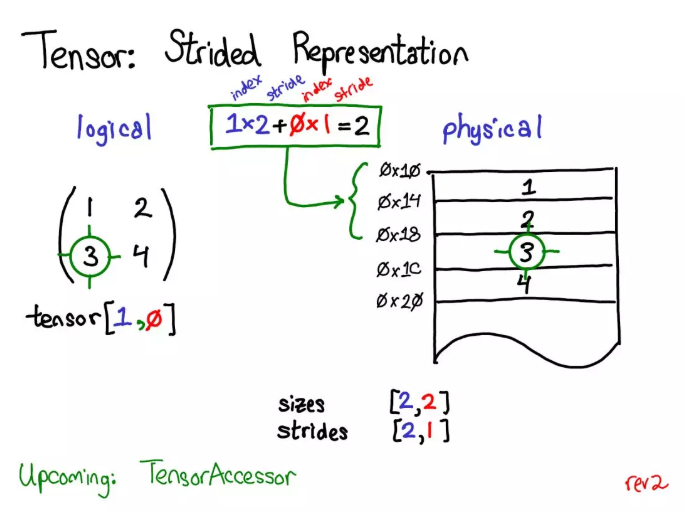 Tensor: Strided Representation
index stride index stride
logical
1×2+0×1=2
physical
1 2
3 4
tensor[1,0]
0x10
1
0x14
2
0x18
3
0x1C
4
0x20
sizes [2,2]
strides [2,1]
Upcoming: TensorAccessor
rev2